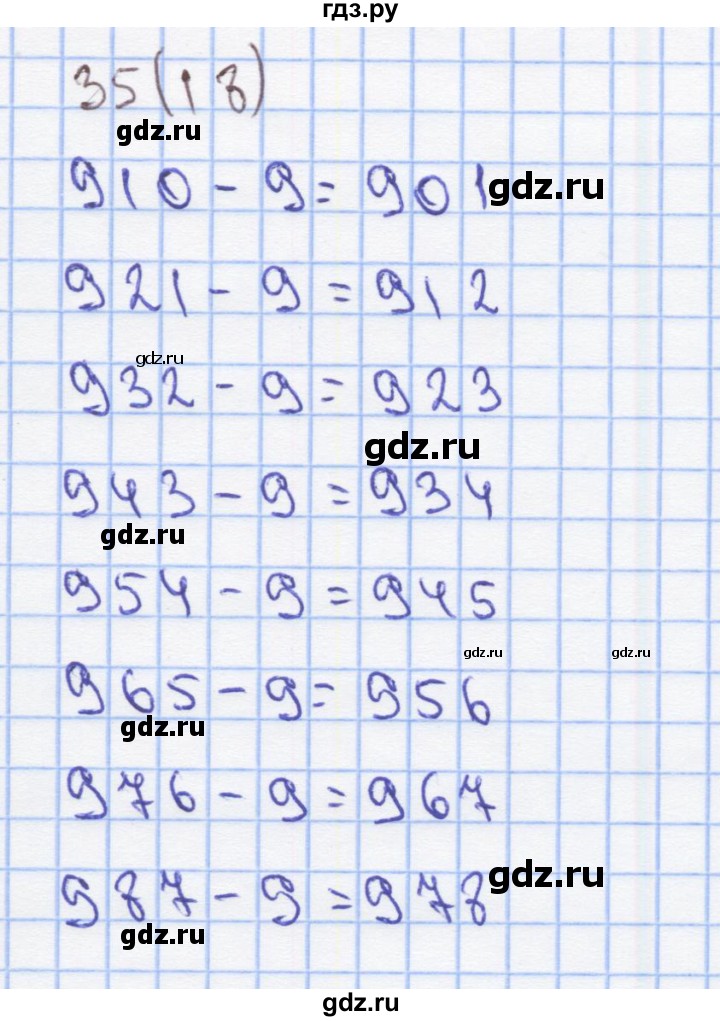 гдз.ру
35(18)
gdz.ru
910 - 9 = 901
gdz.ru
921 - 9 = 912
gdz.ru
932 - 9 = 923
gdz.ru
943 - 9 = 934
gdz.ru
954 - 9 = 945
gdz.ru
gdz.ru
965 - 9 = 956
gdz.ru
976 - 9 = 967
987 - 9 = 978
gdz.ru
gdz.ru
gdz.ru